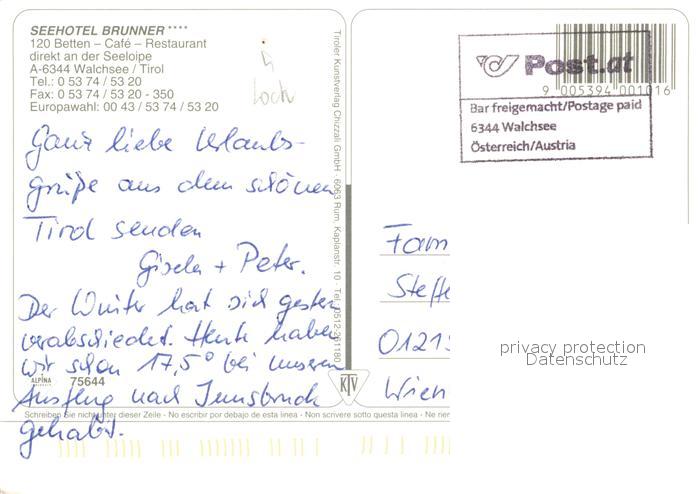 SEEHOTEL BRUNNER ****
120 Betten – Café – Restaurant
direkt an der Seeloipe
A-6344 Walchsee / Tirol
Tel.: 0 53 74 / 53 20
Fax: 0 53 74 / 53 20 - 350
Europawahl: 00 43 / 53 74 / 53 20
Loch
Ganz liebe Urlaubs-
grüße aus dem schönen
Tirol senden
Gisela + Peter.
Der Winter hat sich gestern
verabschiedet. Heute haben
wir schon 17,5° bei unserem
Ausflug nach Innsbruck
gehabt.
ALPINA
75644
Schreiben Sie nicht unter dieser Zeile - No escribir por debajo de esta linea - Non scrivere sotto questa linea - Ne rien
Tiroler Kunstverlag Chizzali GmbH · 6063 Rum, Kaplanstr. 10 · Tel. 0512-261180
KTV
Post.at
9 005394 001016
Bar freigemacht/Postage paid
6344 Walchsee
Österreich/Austria
Fam
Steffe
01219
Wien
privacy protection
Datenschutz